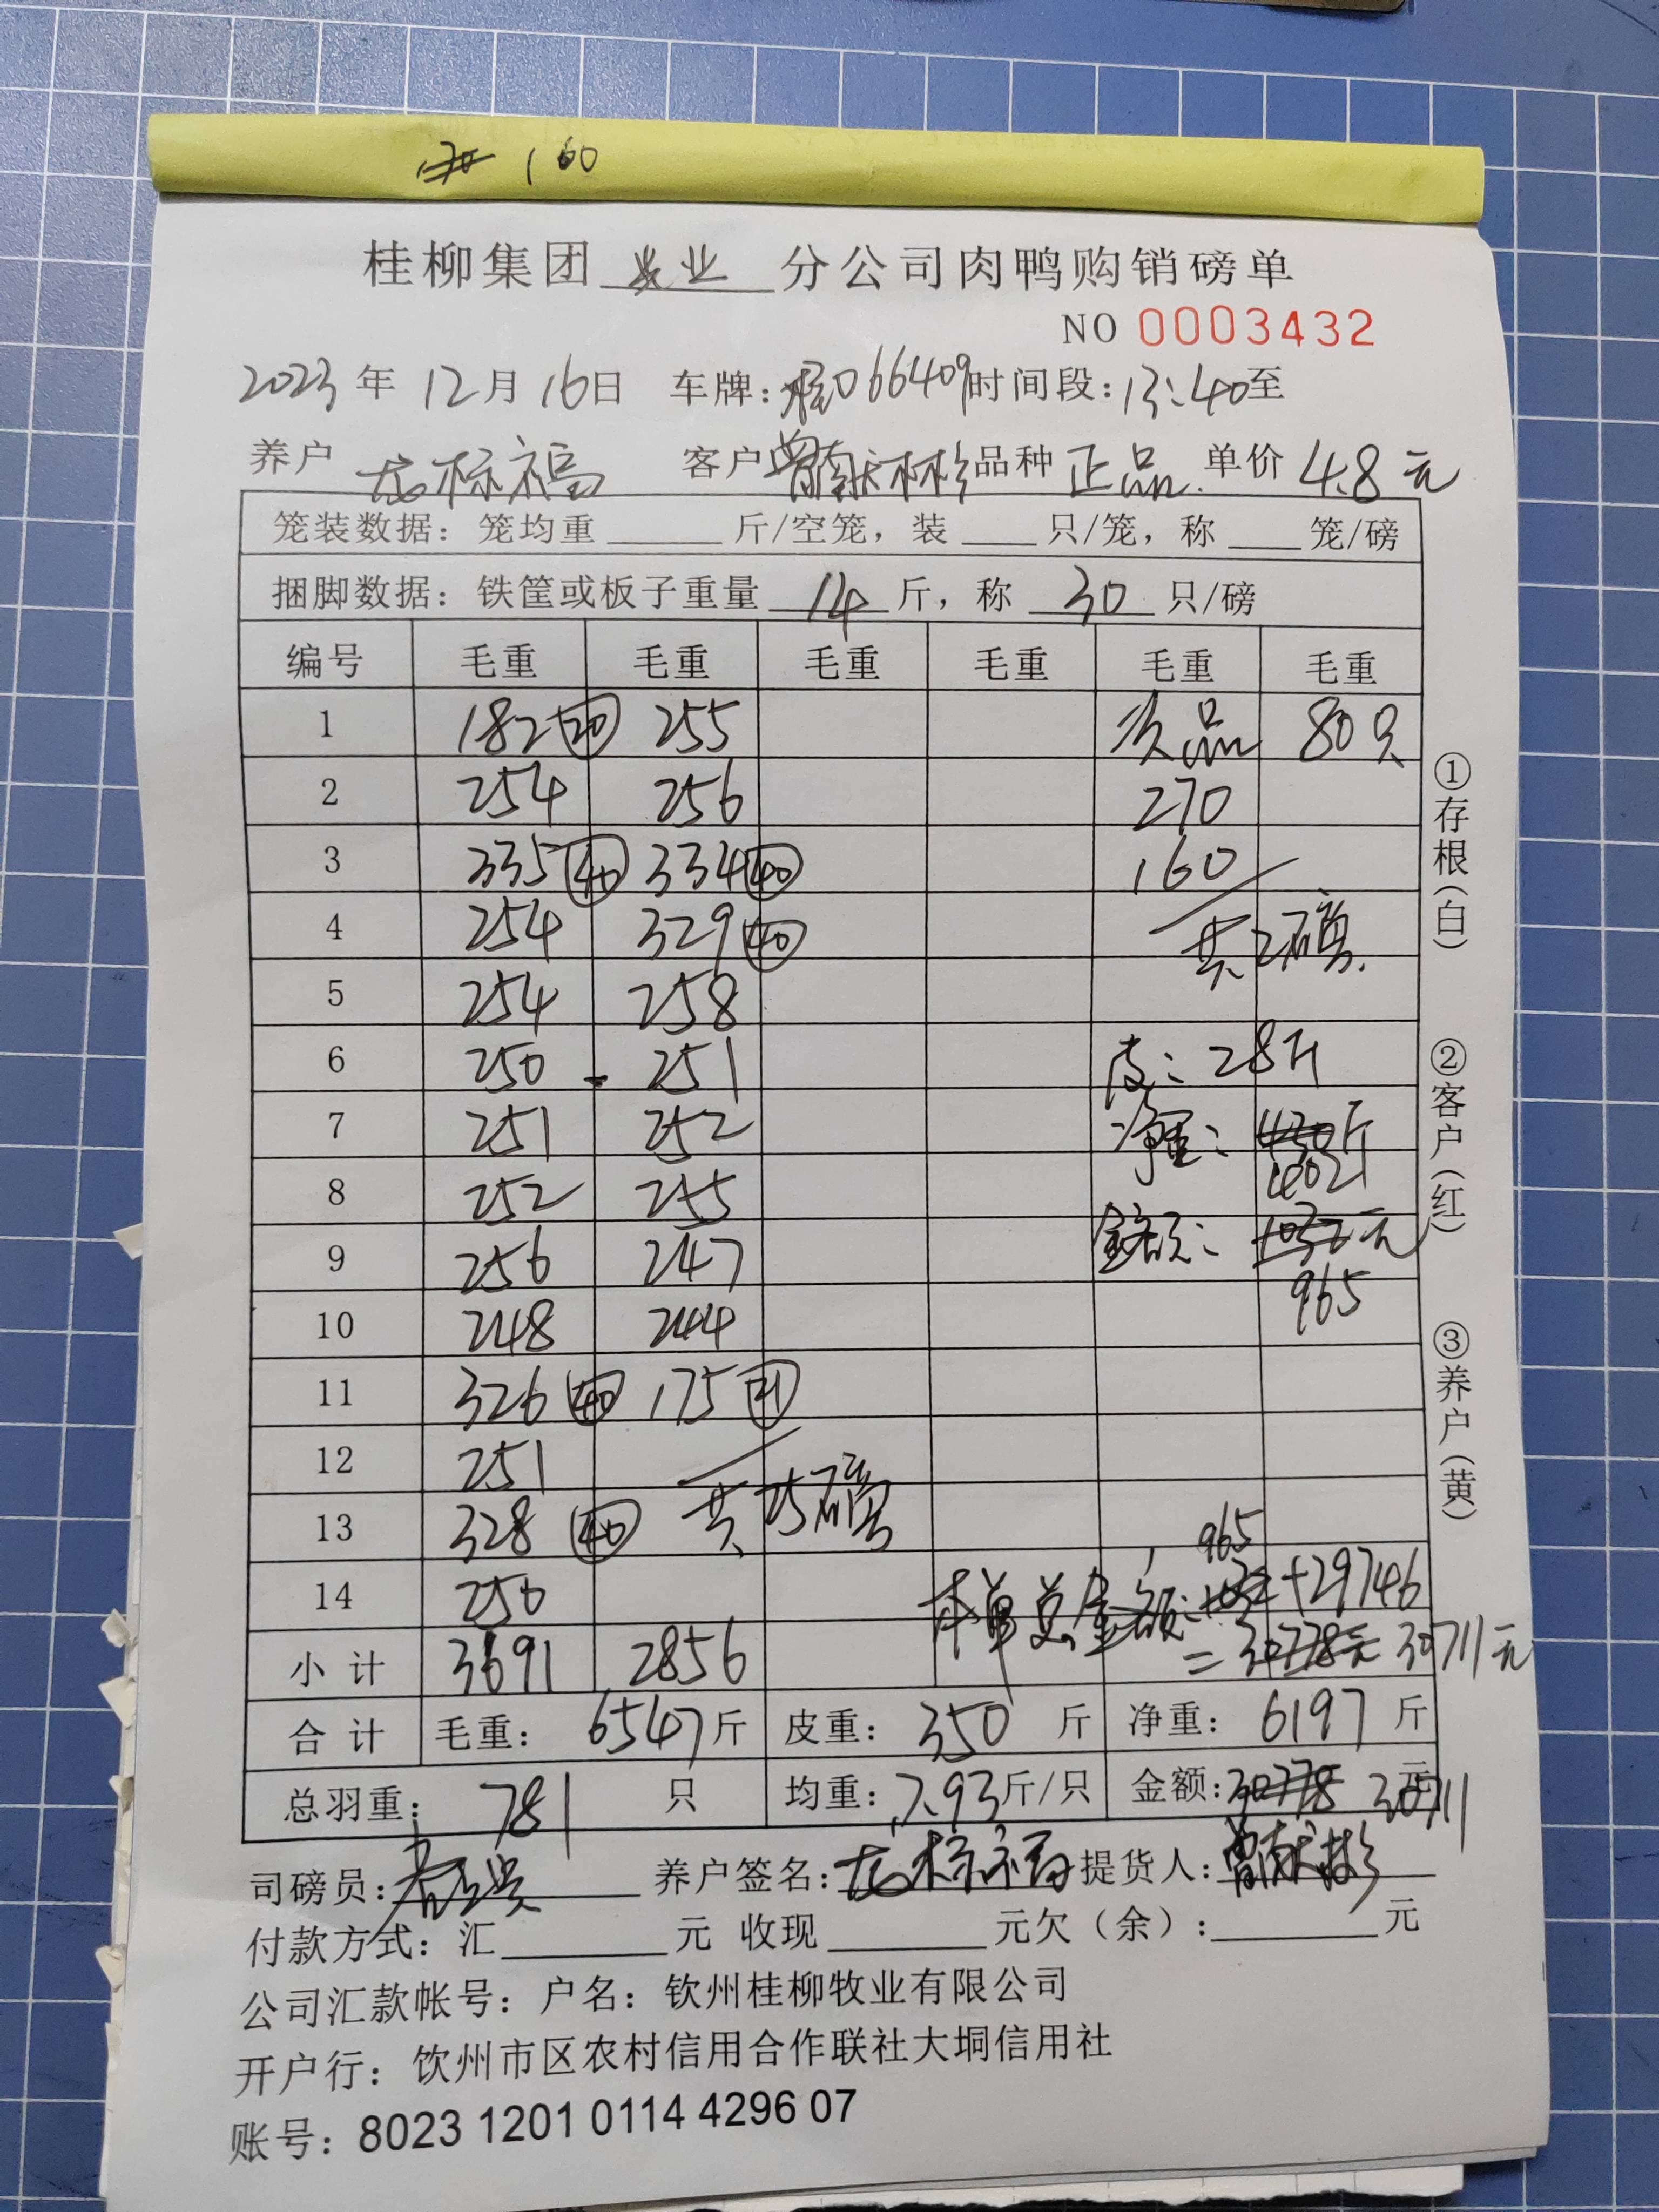 160
桂柳集团 牧业 分公司肉鸭购销磅单
NO 0003432
2023年12月16日 车牌:桂066409 时间段:13:40至
养户 龙标福 客户 曾献彬 品种 正品 单价 4.8元
笼装数据:笼均重 斤/空笼,装 只/笼,称 笼/磅
捆脚数据:铁筐或板子重量 14 斤,称 30 只/磅
编号 毛重 毛重 毛重 毛重 毛重 毛重
1 182 20 255 次品 80只
2 254 256 270
3 335 40 334 40 160
4 254 329 40 共2磅.
5 254 258
6 250 251 皮:28斤
7 251 252 净重:430斤
8 252 255 402斤
9 256 247 金额:1032元
10 248 244 965
11 326 40 175 21
12 251
13 328 40 共25磅
965
14 250 本单总金额:1032+29746
=30778元 30711元
小计 3691 2856
合计 毛重:6547斤 皮重:350斤 净重:6197斤
总羽重:781只 均重:7.93斤/只 金额:30778 元 30711
司磅员: 养户签名:龙标福 提货人:曾献彬
付款方式:汇 元 收现 元欠(余): 元
公司汇款帐号:户名:钦州桂柳牧业有限公司
开户行:钦州市区农村信用合作联社大垌信用社
账号:8023 1201 0114 4296 07
①存根(白)
②客户(红)
③养户(黄)